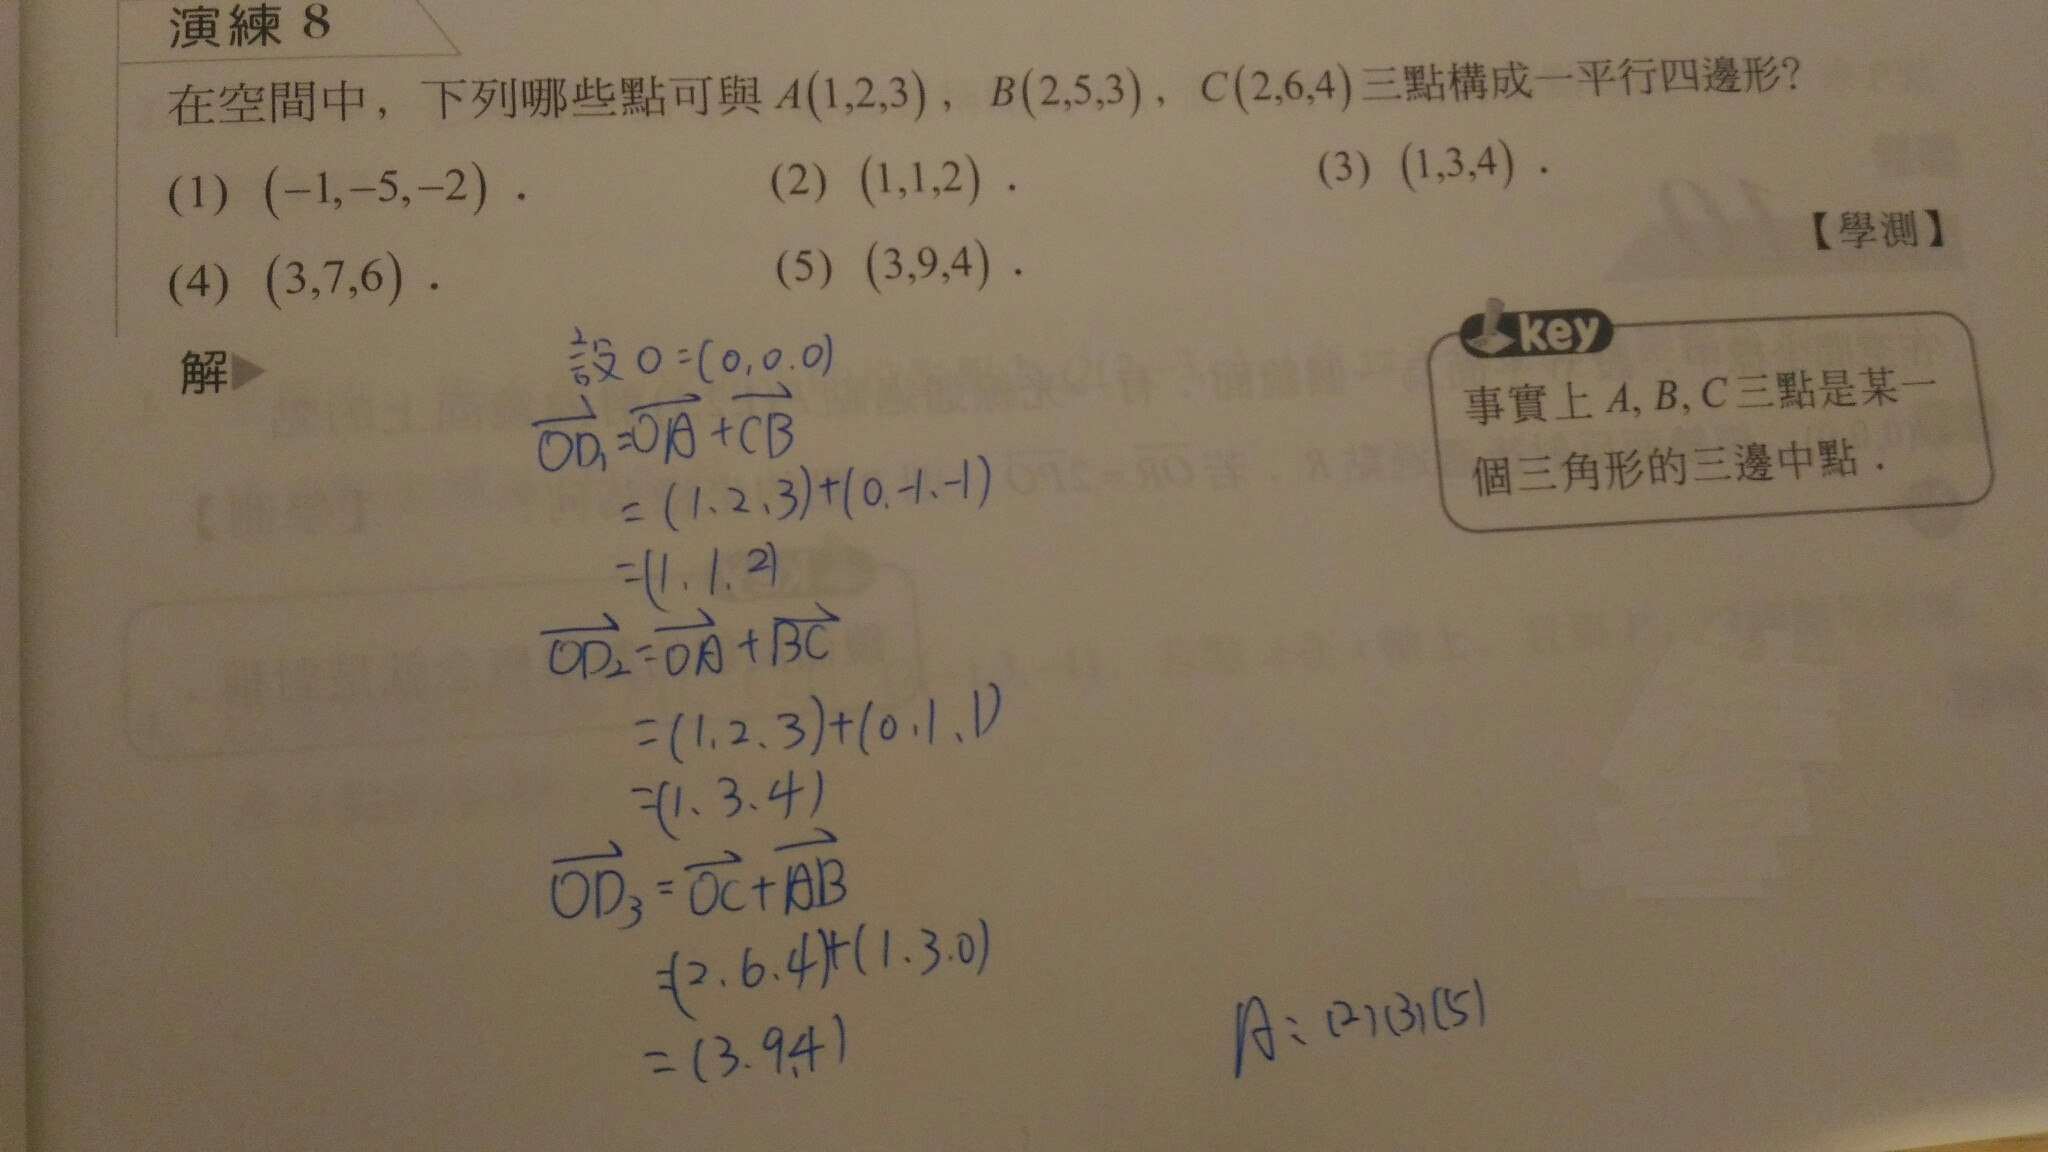 演練 8
在空間中，下列哪些點可與 A(1,2,3)，B(2,5,3)，C(2,6,4) 三點構成一平行四邊形？
(1) (−1,−5,−2)． (2) (1,1,2)． (3) (1,3,4)．
(4) (3,7,6)． (5) (3,9,4)．
【學測】
解▶
key
事實上 A, B, C 三點是某一
個三角形的三邊中點．
設 O=(0,0.0)
→OD₁=→OA+→CB
=(1.2.3)+(0.-1.-1)
=(1.1.2)
→OD₂=→OA+→BC
=(1.2.3)+(0.1.1)
=(1.3.4)
→OD₃=→OC+→AB
=(2.6.4)+(1.3.0)
=(3.9.4)
A:(2)(3)(5)